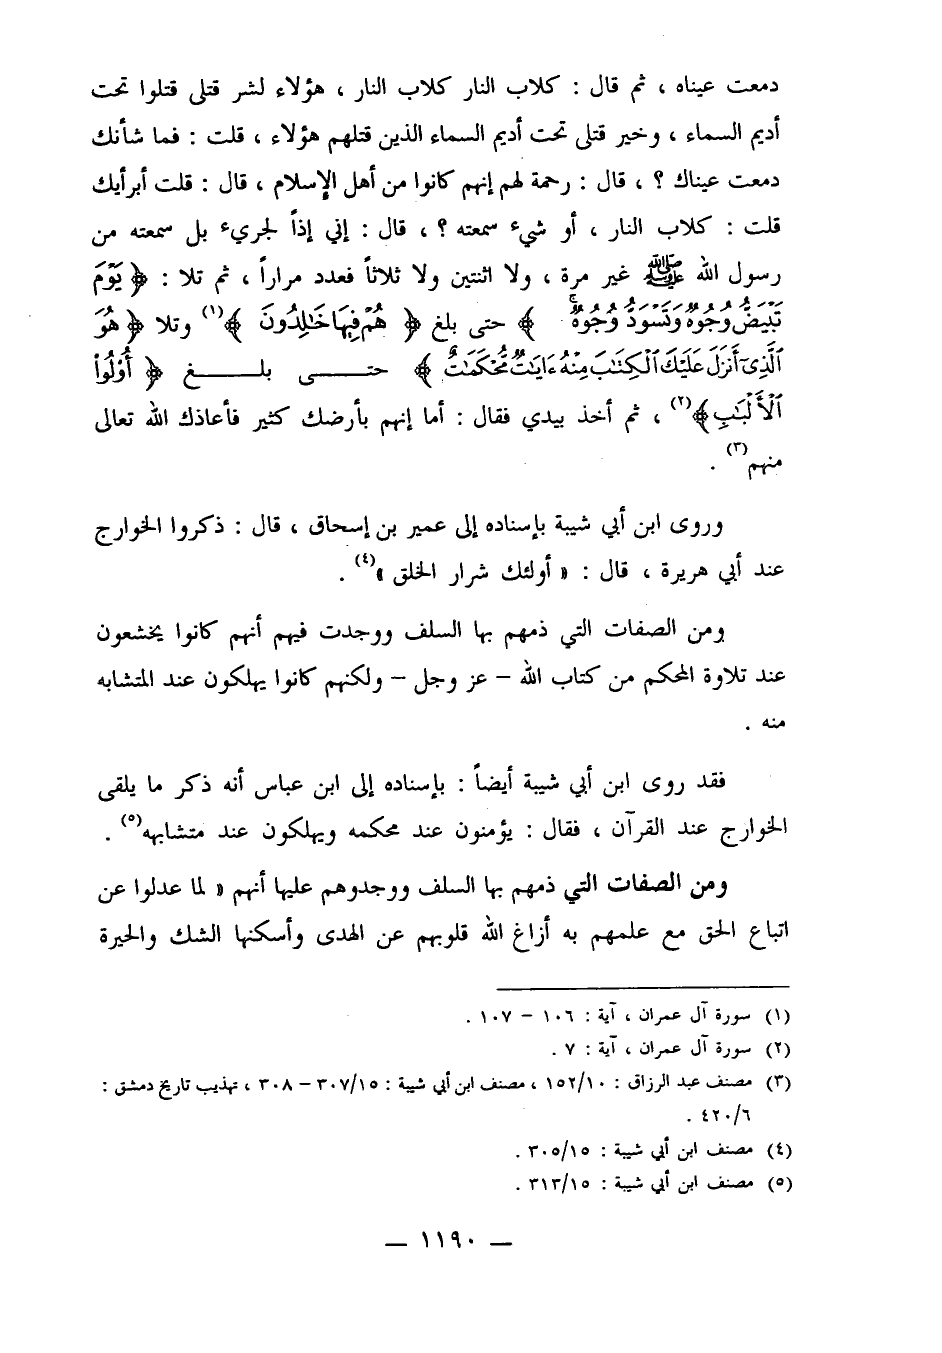 دمعت عيناه ، ثم قال : كلاب النار كلاب النار ، هؤلاء لشر قتلى قتلوا تحت
أديم السماء ، وخير قتلى تحت أديم السماء الذين قتلهم هؤلاء ، قلت : فما شأنك
دمعت عيناك ؟ ، قال : رحمة لهم إنهم كانوا من أهل الإسلام ، قال : قلت أبرأيك
قلت : كلاب النار ، أو شيء سمعته ؟ ، قال : إني إذاً لجريء بل سمعته من
رسول الله ﷺ غير مرة ، ولا اثنتين ولا ثلاثاً فعدد مراراً ، ثم تلا : ﴿ يَوْمَ
تَبْيَضُّ وُجُوهٌ وَتَسْوَدُّ وُجُوهٌ ۚ ﴾ حتى بلغ ﴿ هُمْ فِيهَا خَٰلِدُونَ ﴾(١) وتلا ﴿ هُوَ
ٱلَّذِىٓ أَنزَلَ عَلَيْكَ ٱلْكِتَٰبَ مِنْهُ ءَايَٰتٌ مُّحْكَمَٰتٌ ﴾ حتــى بلــــغ ﴿ أُوْلُواْ
ٱلْأَلْبَٰبِ ﴾(٢) ، ثم أخذ بيدي فقال : أما إنهم بأرضك كثير فأعاذك الله تعالى
منهم(٣) .
وروى ابن أبي شيبة بإسناده إلى عمير بن إسحاق ، قال : ذكروا الخوارج
عند أبي هريرة ، قال : « أولئك شرار الخلق »(٤) .
ومن الصفات التي ذمهم بها السلف ووجدت فيهم أنهم كانوا يخشعون
عند تلاوة المحكم من كتاب الله – عز وجل – ولكنهم كانوا يهلكون عند المتشابه
منه .
فقد روى ابن أبي شيبة أيضاً : بإسناده إلى ابن عباس أنه ذكر ما يلقى
الخوارج عند القرآن ، فقال : يؤمنون عند محكمه ويهلكون عند متشابهه(٥) .
ومن الصفات التي ذمهم بها السلف ووجدوهم عليها أنهم « لما عدلوا عن
اتباع الحق مع علمهم به أزاغ الله قلوبهم عن الهدى وأسكنها الشك والحيرة
(١) سورة آل عمران ، آية : ١٠٦ – ١٠٧ .
(٢) سورة آل عمران ، آية : ٧ .
(٣) مصنف عبد الرزاق : ١٥٢/١٠ ، مصنف ابن أبي شيبة : ٣٠٧/١٥ – ٣٠٨ ، تهذيب تاريخ دمشق :
٤٢٠/٦ .
(٤) مصنف ابن أبي شيبة : ٣٠٥/١٥ .
(٥) مصنف ابن أبي شيبة : ٣١٣/١٥ .
— ١١٩٠ —